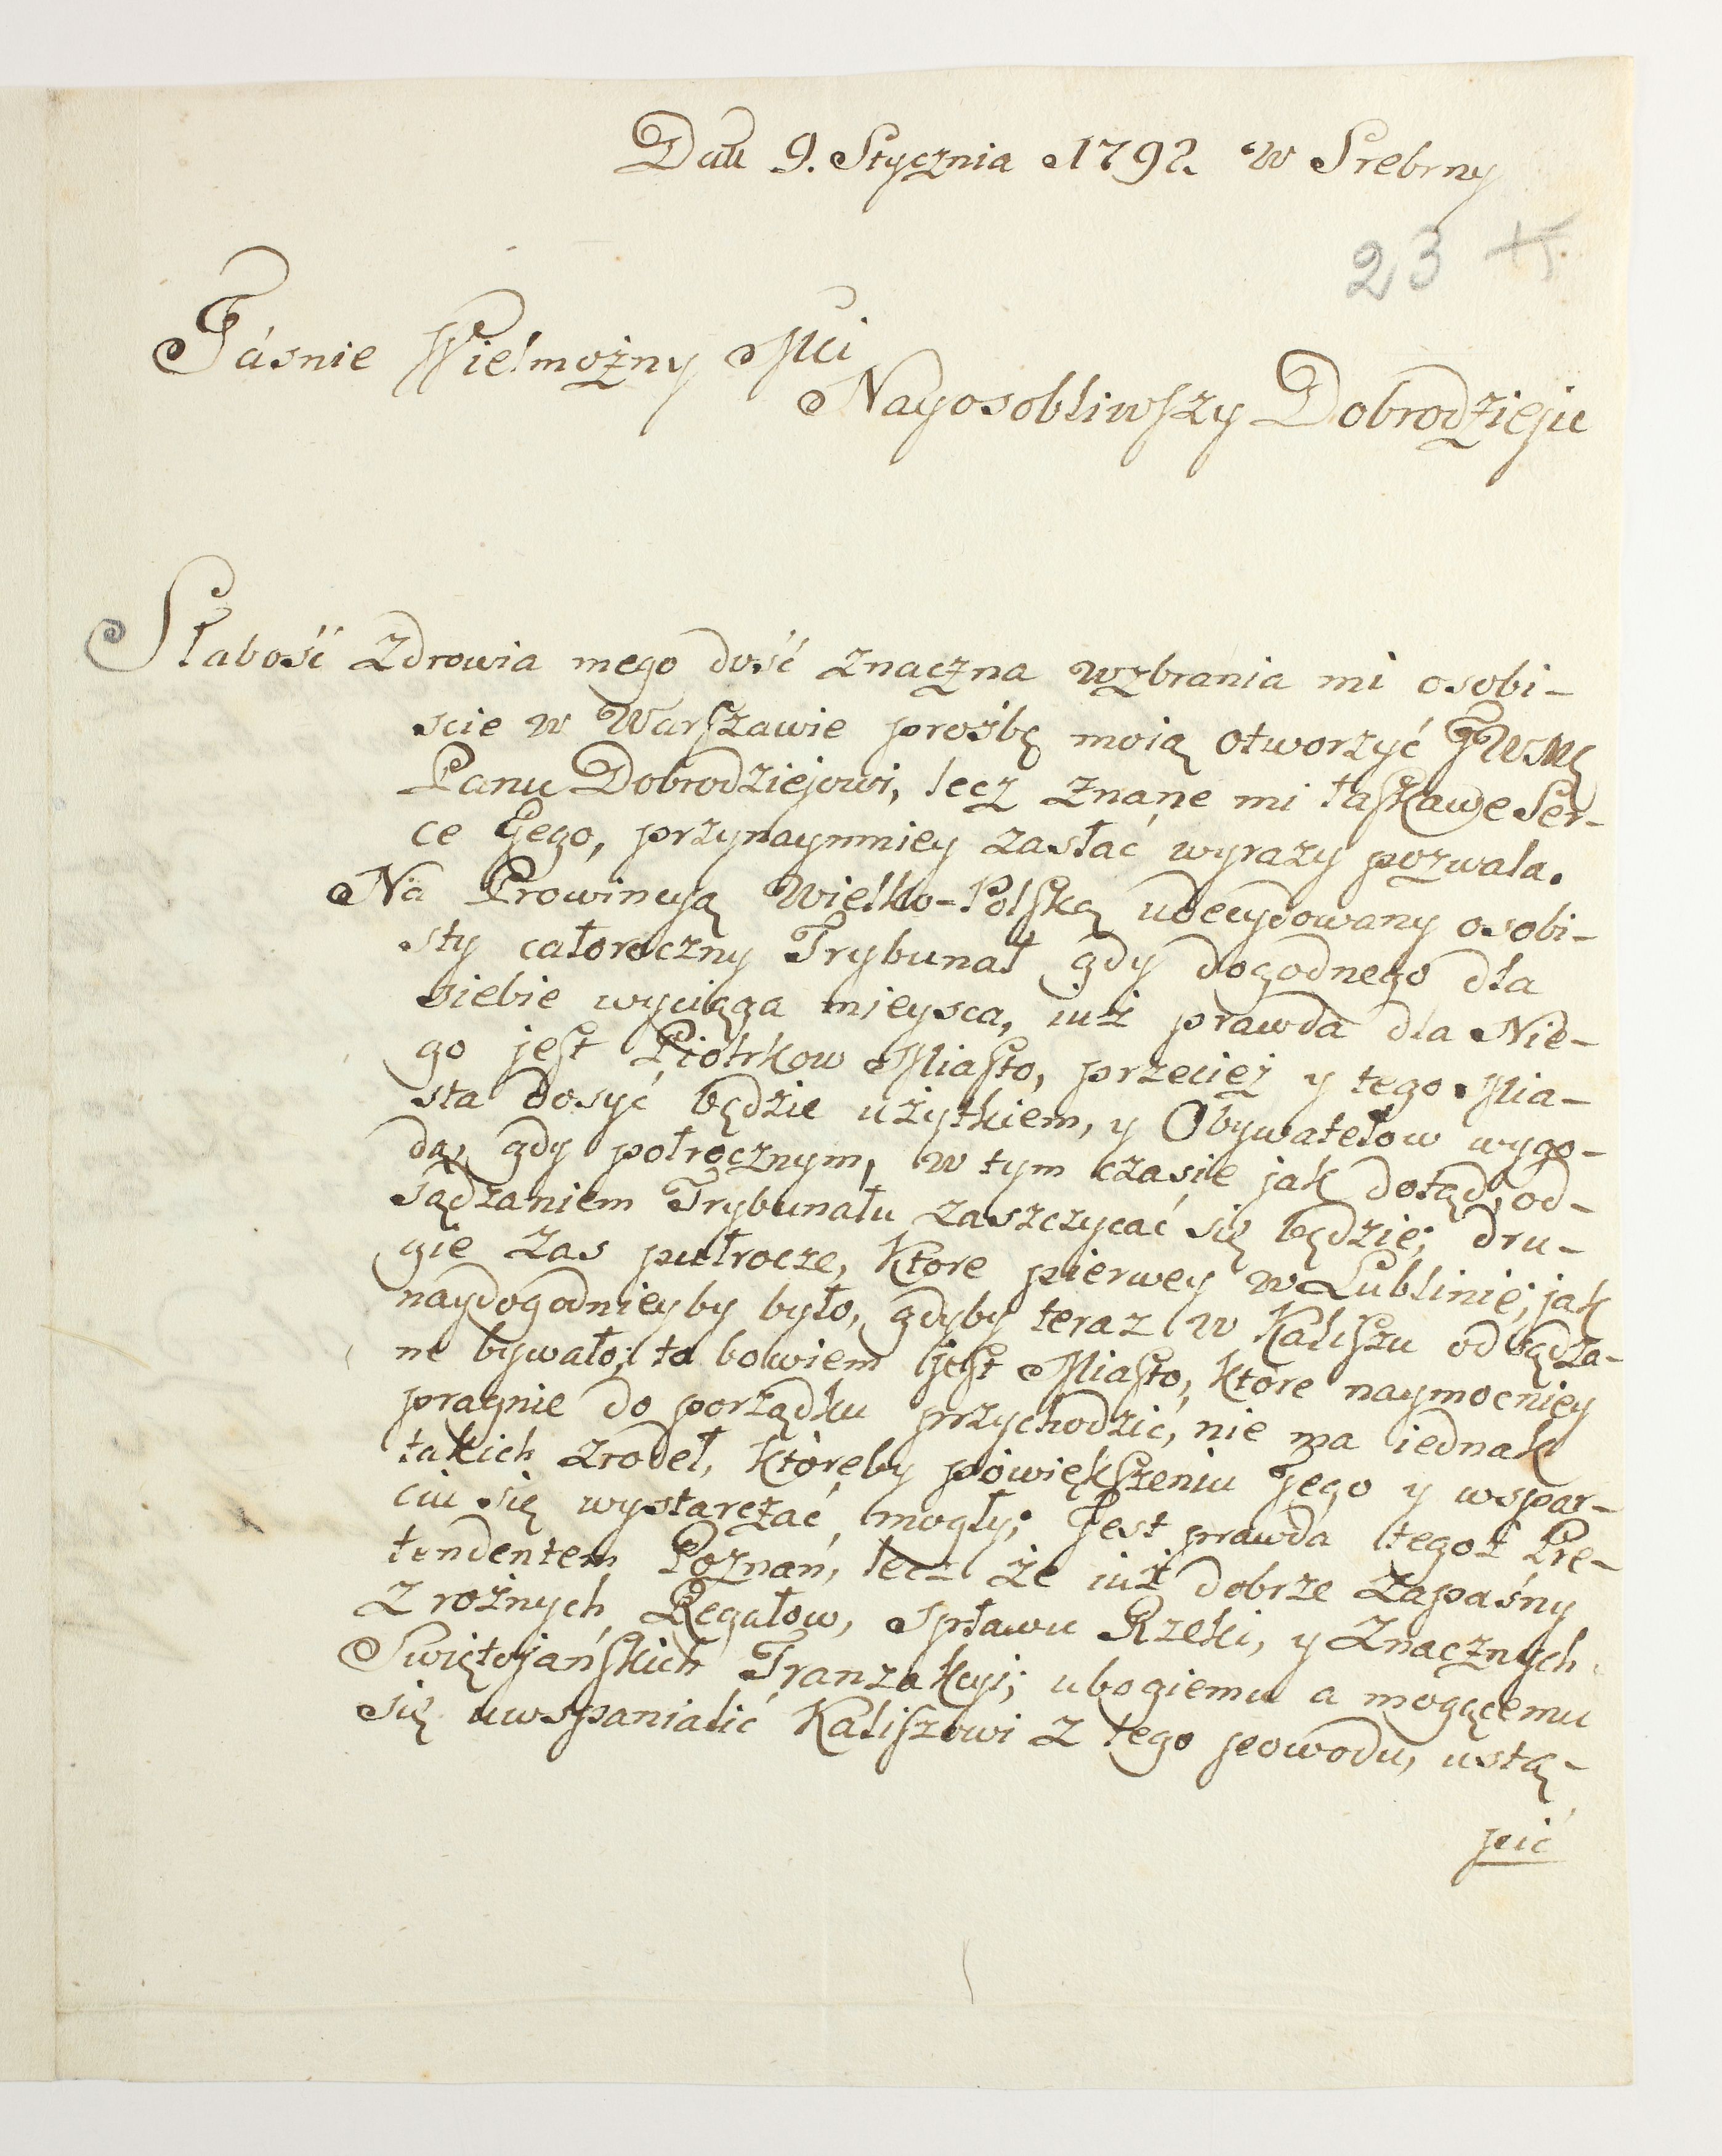 Dnia 9. Stycznia 1792. w Srebrny
23
Jásnie Wielmożny Mci
Nayosobliwszy Dobrodzieju
Słabość Zdrowia mego dość znaczna wzbrania mi osobi-
scie w Warszawie prośbę moią otworzyć JWMę
Panu Dobrodziejowi, lecz znane mi łaskawe Ser-
ce Jego, przynaymniey zasłać wyrazy pozwala.
Na Prowincyą Wielko-Polską udecydowany osobi-
sty całoroczny Trybunał gdy dogodnego dla
siebie wyciąga mieysca, iuż prawda dla Nie-
go jest Piotrkow Miasto, przecież y tego Mia-
sta dosyć będzie użytkiem, y Obywatelow wygo-
dą, gdy połrocznym, w tym czasie jak dotąd, od-
sądzaniem Trybunału zaszczycać się będzie; dru-
gie zas pułrocze, ktore pierwey w Lublinie, jak
naydogodnieyby było, gdyby teraz w Kaliszu odsądza-
ne bywało; to bowiem jest Miasto, ktore naymocniey
pragnie do porządku przychodzić, nie ma iednak
takich zrodeł, ktoreby powiększeniu Jego y wspar-
ciu się wystarczać mogły; Jest prawda tegoż Pre-
tendentem Poznań, lecz że iuż dobrze zapaśny
z rożnych Regałow, spławu Rzeki, y znacznych
Swiętojańskich Tranzakcyi; ubogiemu a mogącemu
się uwspanialić Kaliszowi z tego powodu, ustą-
pić